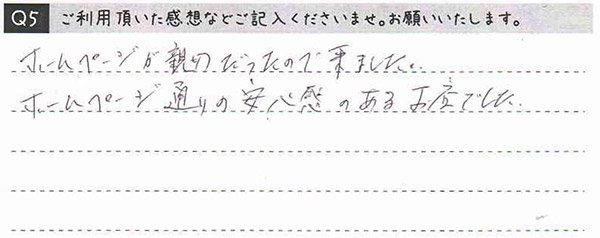 Q5 ご利用頂いた感想などご記入くださいませ。お願いいたします。
ホームページが親切だったので来ました。
ホームページ通りの安心感のあるお店でした。